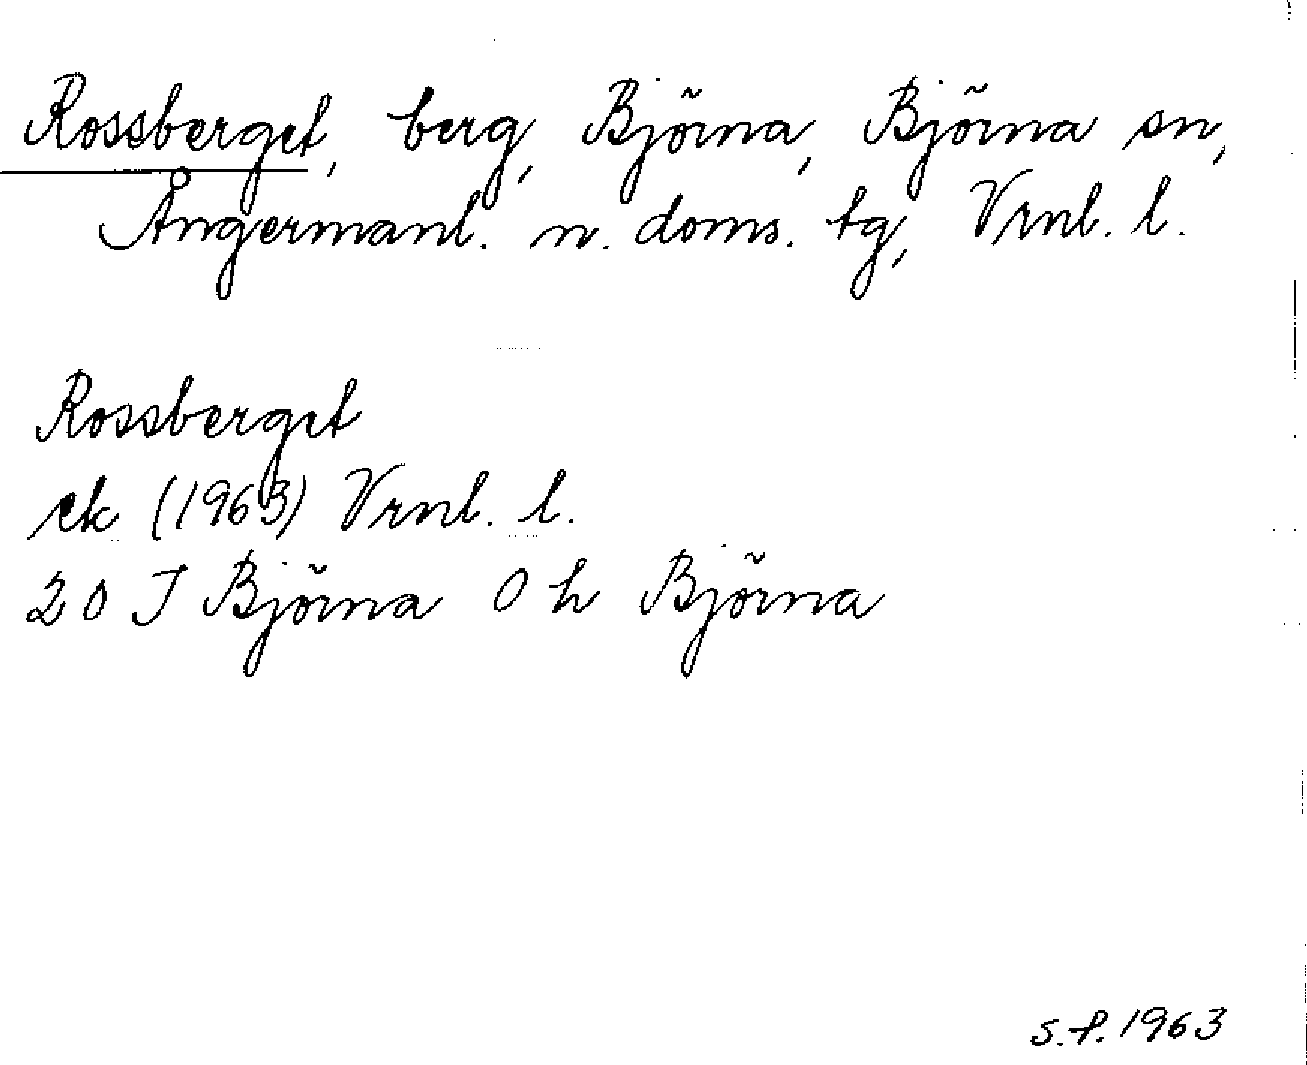 Rossberget, berg, Björna, Björna sn,
Ångermanl. n. doms. tg, Vrnl. l.
Rossberget
ek (1963) Vrnl. l.
20 I Björna 0 h Björna
s.f. 1963